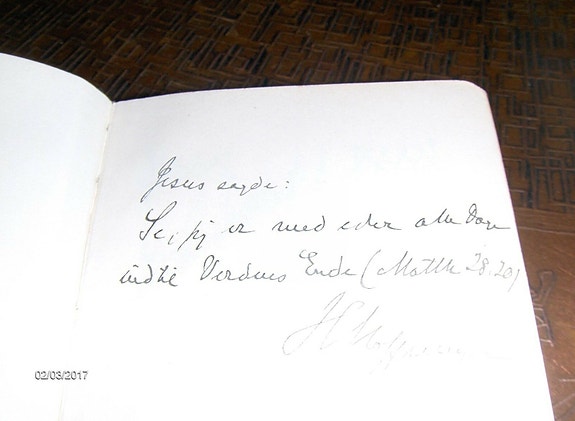 Jesus sagde:
Se, jeg er med eder alle Dage
indtil Verdens Ende (Matth 28.20)
02/03/2017